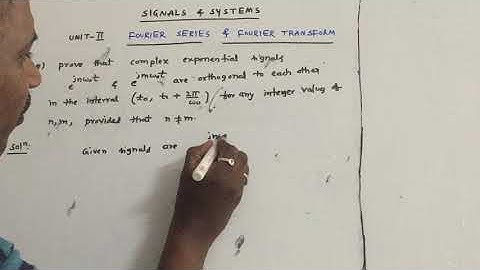 SIGNALS & SYSTEMS
UNIT-II FOURIER SERIES & FOURIER TRANSFORM
prove that complex exponential signals
e^jnω₀t & e^jmω₀t are orthogonal to each other
in the interval (t₀, t₀ + 2π/ω₀) for any integer value of
n,m, provided that n ≠ m.
Solⁿ: Given signals are